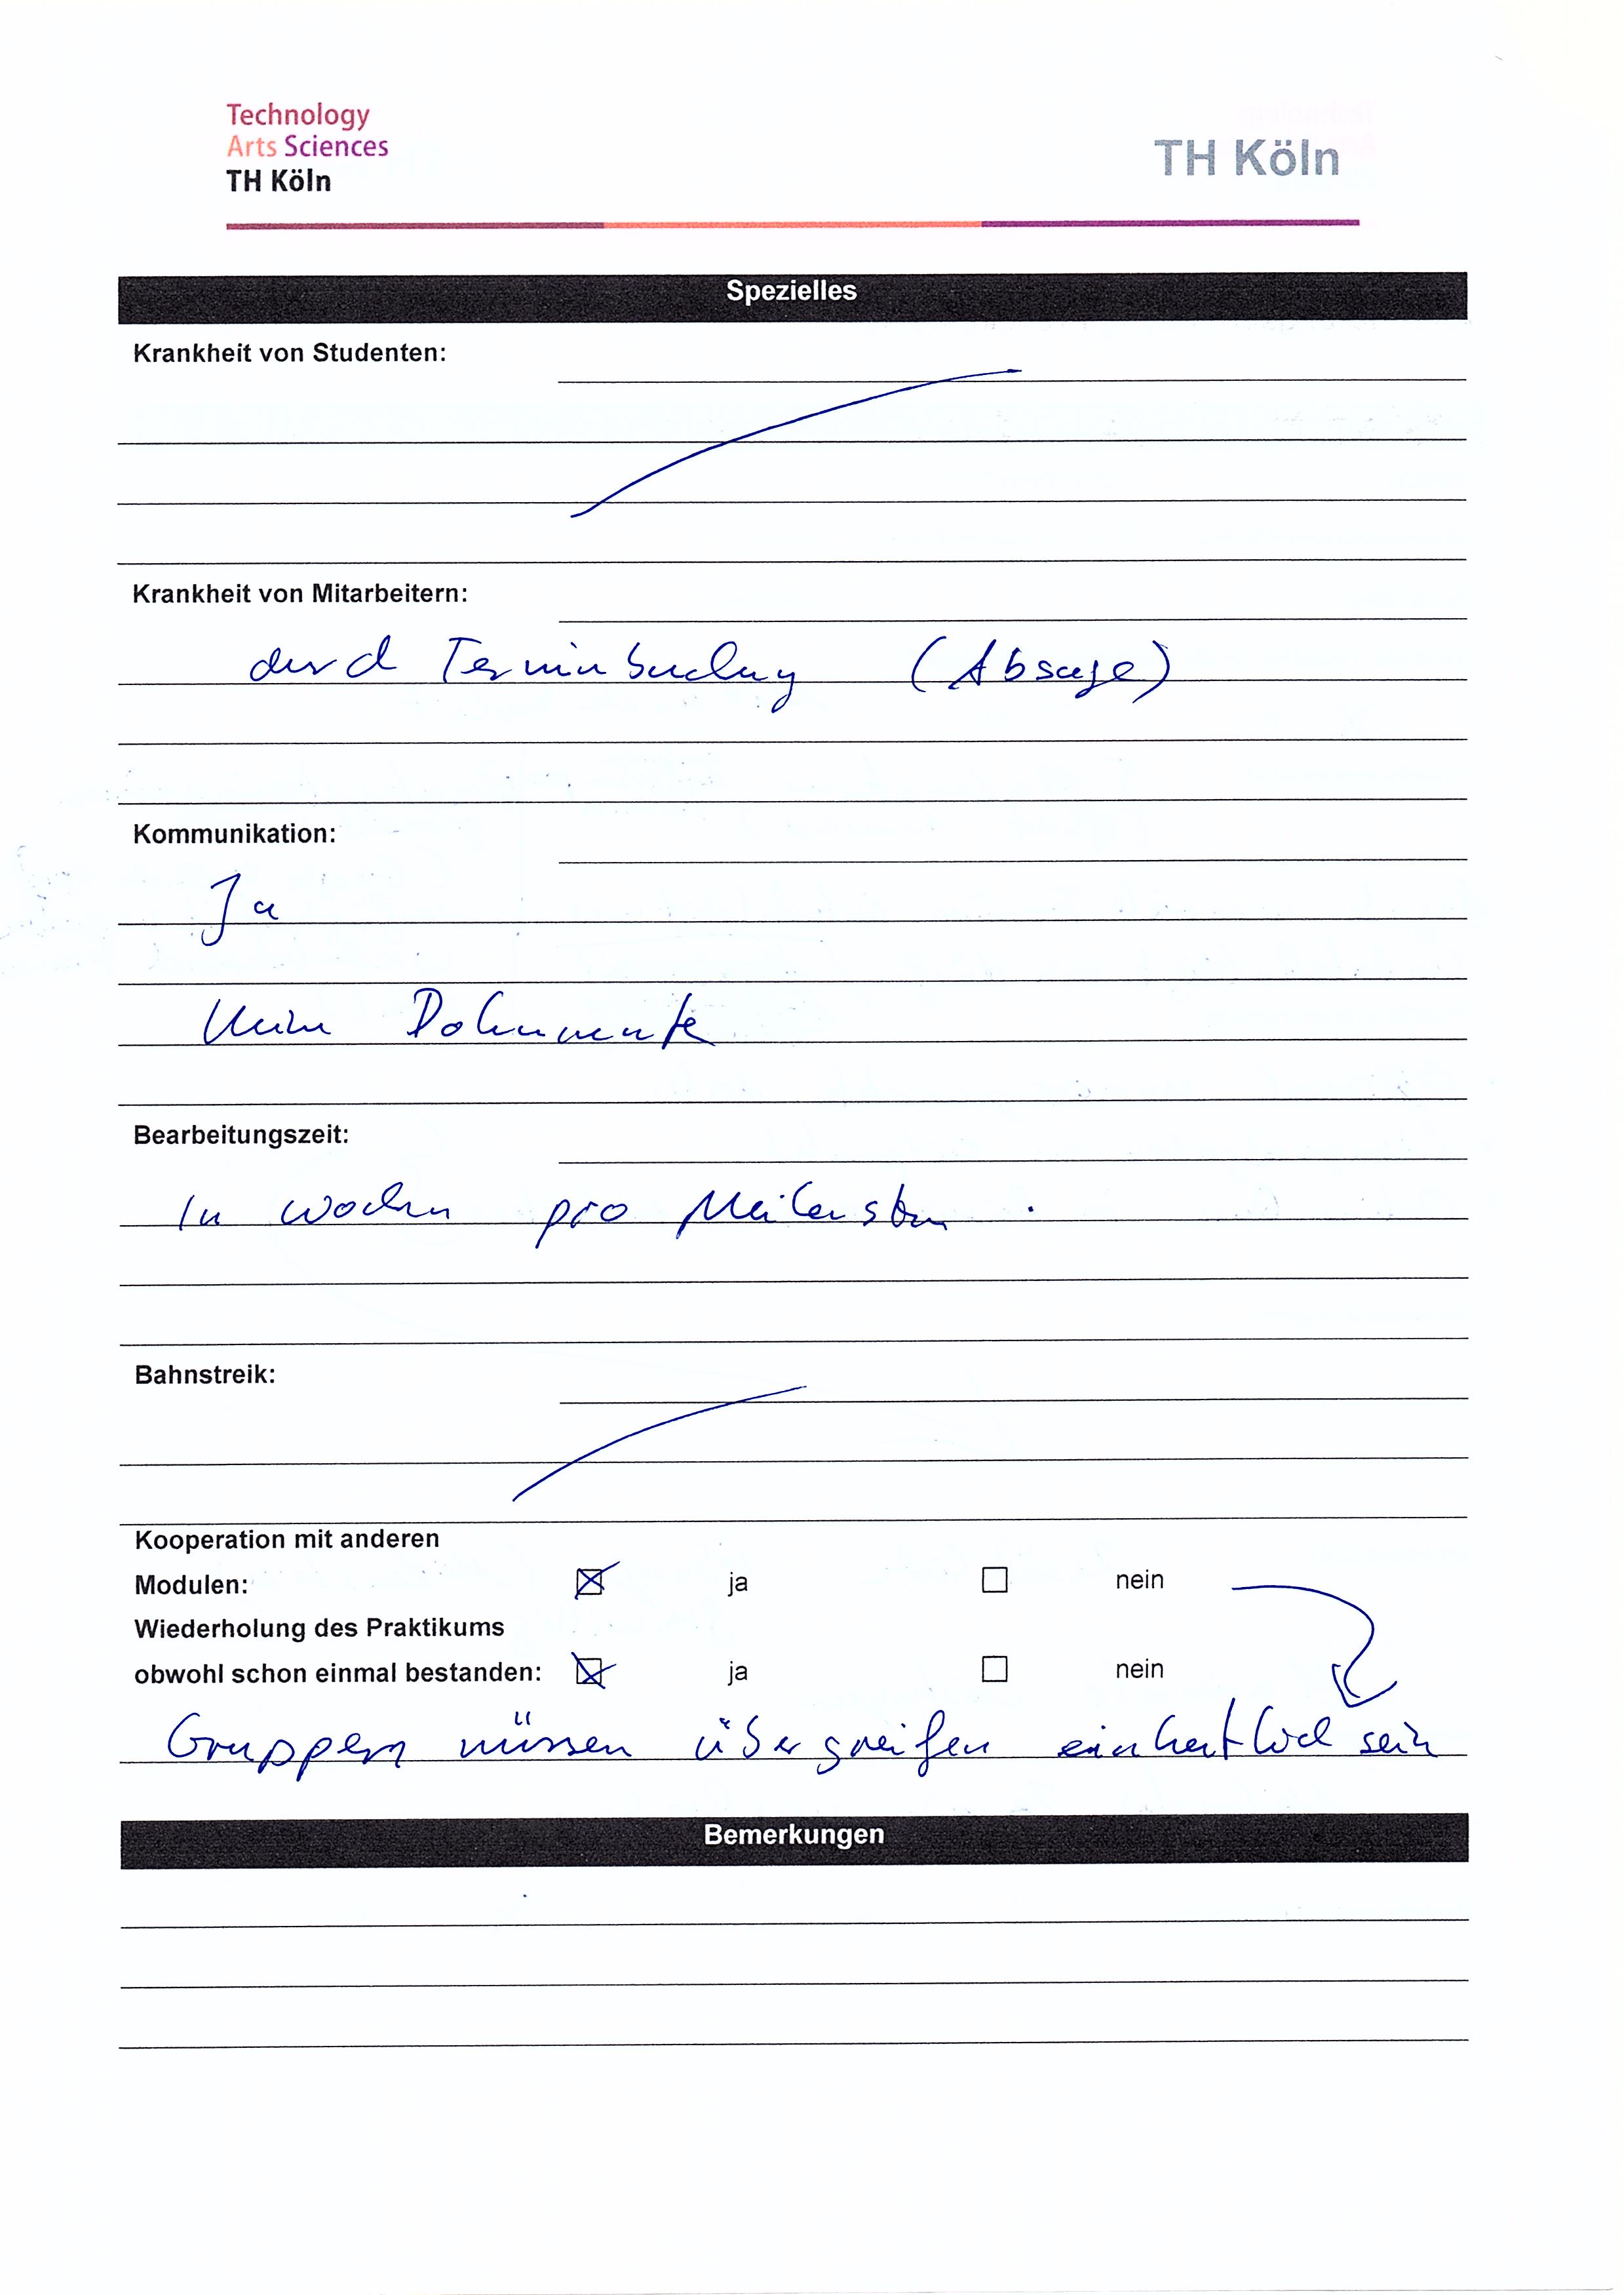 Technology
Arts Sciences
TH Köln
TH Köln
Spezielles
Krankheit von Studenten:
Krankheit von Mitarbeitern:
durch Terminbuchung (Absage)
Kommunikation:
Ja
Keine Dokumente
Bearbeitungszeit:
In Wochen pro Meilenstein.
Bahnstreik:
Kooperation mit anderen
Modulen: ja nein
Wiederholung des Praktikums
obwohl schon einmal bestanden: ja nein
Gruppen müssen übergreifen einheitlich sein
Bemerkungen